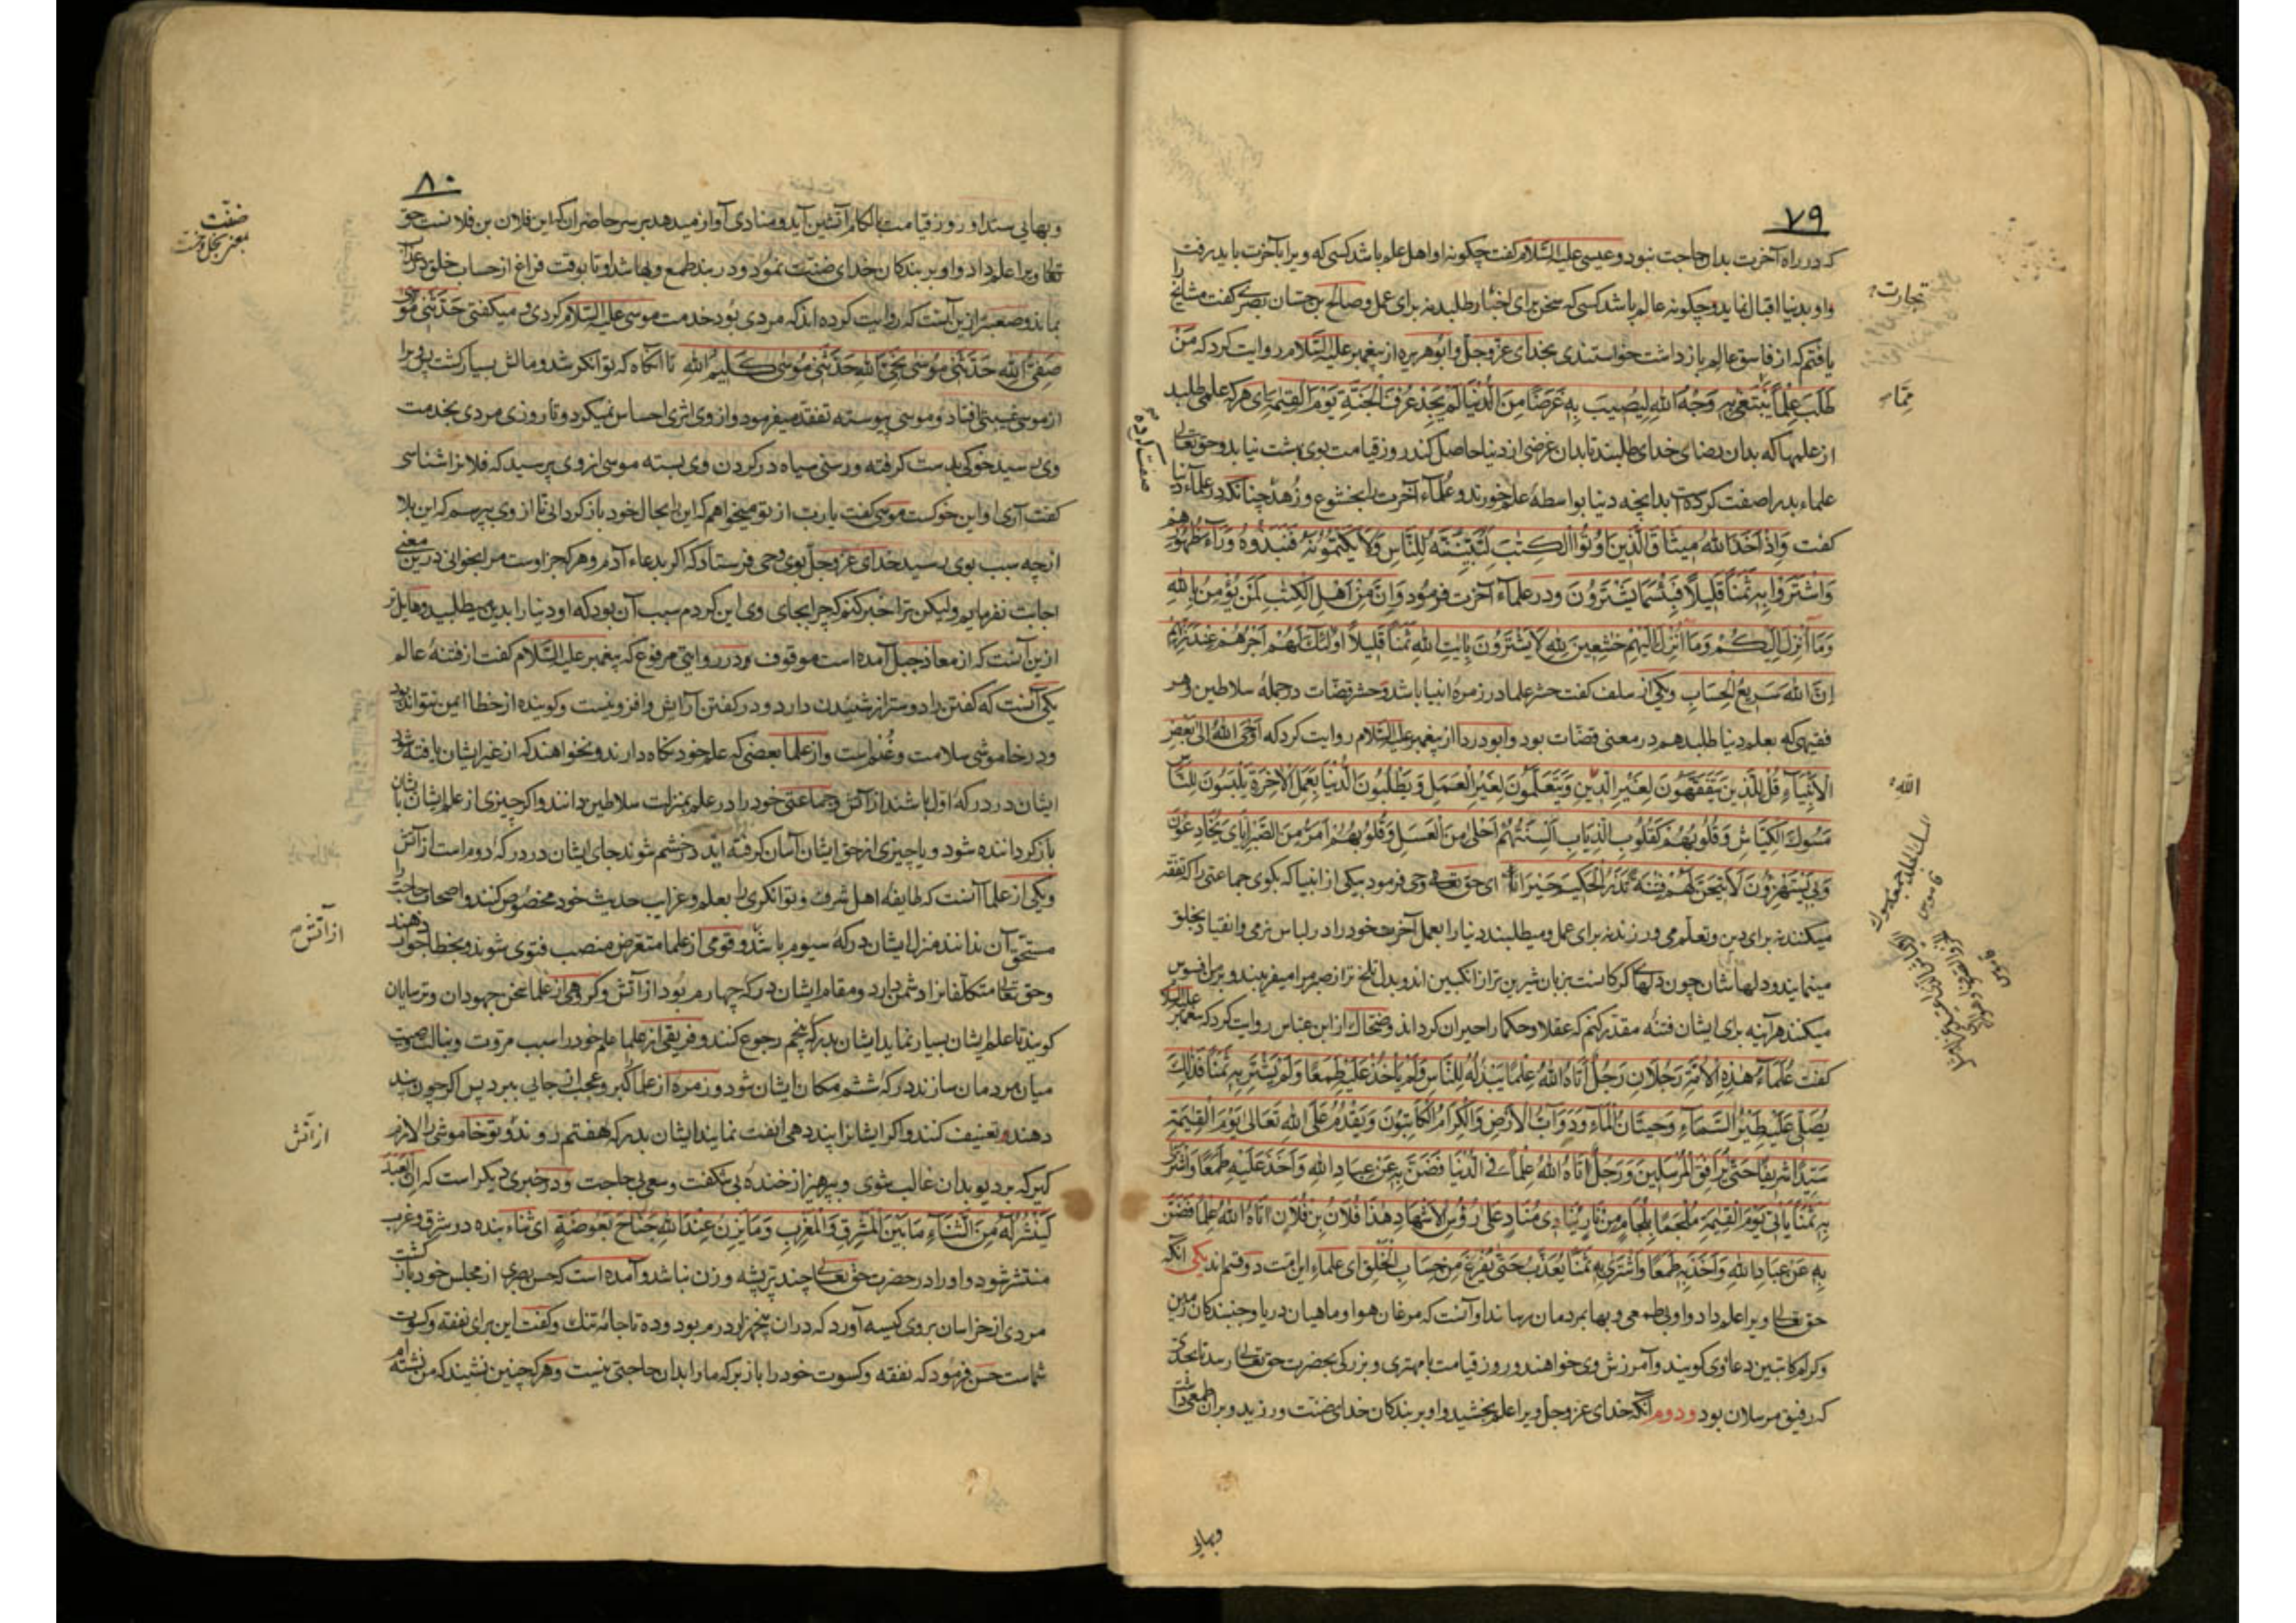 ٧٩
که در راه آخرت بدان حاجت نبود و عیسی علیه السلام گفت چگونه او اهل علم باشد کسی که ویرا بآخرت باید رفت
واو بدنیا اقبال نماید و چگونه عالم باشد کسی که سخن برای اخبار طلبد نه برای عمل و صالح بن حسان بصری گفت مشایخ را
یافتم که از فاسق عالم بازداشت خواستندی بخدای عز وجل وابو هریره از پیغمبر علیه السلام روایت کرد که مَنْ
طَلَبَ عِلْمًا یُبْتَغٰی بِهِ وَجْهُ اللهِ لِیُصِیبَ بِهِ عَرَضًا مِنَ الدُّنْیَا لَمْ یَجِدْ عَرْفَ الْجَنَّةِ یَوْمَ الْقِیٰمَةِ ای هرکه علمی طلبد
از علمها که بدان رضای خدای طلبند تا بدان غرضی از دنیا حاصل کند روز قیامت بوی بهشت نیابد وحق تعالی
علماء بد را صفت کرده است بدانچه دنیا بواسطه علم خورند وعلماء آخرت را بخشوع وزهد چنانکه در علماء دنیا
گفت وَاِذْ اَخَذَ اللهُ مِیثَاقَ الَّذِینَ اُوتُوا الْکِتٰبَ لَتُبَیِّنُنَّهُ لِلنَّاسِ وَلَا یَکْتُمُونَهُ فَنَبَذُوهُ وَرَآءَ ظُهُورِهِمْ
وَاشْتَرَوْا بِهِ ثَمَنًا قَلِیلًا فَبِئْسَ مَا یَشْتَرُونَ ودر علماء آخرت فرمود وَاِنَّ مِنْ اَهْلِ الْکِتٰبِ لَمَنْ یُؤْمِنُ بِاللهِ
وَمَا اُنْزِلَ اِلَیْکُمْ وَمَا اُنْزِلَ اِلَیْهِمْ خٰشِعِینَ لِلّٰهِ لَا یَشْتَرُونَ بِاٰیٰتِ اللهِ ثَمَنًا قَلِیلًا اُولٰئِکَ لَهُمْ اَجْرُهُمْ عِنْدَ رَبِّهِمْ
اِنَّ اللهَ سَرِیعُ الْحِسَابِ ویکی از سلف گفت حشر علما در زمره انبیا باشد وحشر قضات در جمله سلاطین وهر
فقیهی که بعلم دنیا طلبد هم در معنی قضات بود وابو دردا از پیغمبر علیه السلام روایت کرد که اَوْحَی اللهُ اِلٰی بَعْضِ
الْاَنْبِیَآءِ قُلْ لِلَّذِینَ یَتَفَقَّهُونَ لِغَیْرِ الدِّینِ وَیَتَعَلَّمُونَ لِغَیْرِ الْعَمَلِ وَیَطْلُبُونَ الدُّنْیَا بِعَمَلِ الْاٰخِرَةِ یَلْبَسُونَ لِلنَّاسِ
مُسُوکَ الْکِبَاشِ وَقُلُوبُهُمْ کَقُلُوبِ الذِّیَابِ اَلْسِنَتُهُمْ اَحْلٰی مِنَ الْعَسَلِ وَقُلُوبُهُمْ اَمَرُّ مِنَ الصَّبْرِ اِیَّایَ یُخَادِعُونَ
وَبِی یَسْتَهْزِؤُنَ لَاُتِیحَنَّ لَهُمْ فِتْنَةً تَذَرُ الْحَکِیمَ حَیْرَانًا ای حق تعالی وحی فرمود بیکی از انبیا که بگوی جماعتی را که تفقه
میکنند نه برای دین وتعلم می ورزند نه برای عمل و میطلبند دنیا را بعمل آخرت خود را در لباس نرمی وانقیاد بخلق
مینمایند ودلهاشان چون دلهای گرگانست بزبان شیرین تر از انگبین اند وبدل تلخ تر از صبر مرا میفریبند وبر من افسوس
میکنند هر آینه برای ایشان فتنه مقدر کنم که عقلا وحکما را حیران گرداند وضحاک از ابن عباس روایت کرد که پیغمبر علیه السلام
گفت عُلَمَآءُ هٰذِهِ الْاُمَّةِ رَجُلَانِ رَجُلٌ اٰتَاهُ اللهُ عِلْمًا یَبْذُلُهُ لِلنَّاسِ وَلَمْ یَأْخُذْ عَلَیْهِ طَمَعًا وَلَمْ یَشْتَرِ بِهِ ثَمَنًا فَذٰلِکَ
یُصَلِّی عَلَیْهِ طَیْرُ السَّمَآءِ وَحِیتَانُ الْمَآءِ وَدَوَآبُّ الْاَرْضِ وَالْکِرَامُ الْکَاتِبُونَ وَیَقْدُمُ عَلَی اللهِ تَعَالٰی یَوْمَ الْقِیٰمَةِ
سَیِّدًا شَرِیفًا حَتّٰی یُرَافِقَ الْمُرْسَلِینَ وَرَجُلٌ اٰتَاهُ اللهُ عِلْمًا فِی الدُّنْیَا فَضَنَّ بِهِ عَنْ عِبَادِ اللهِ وَاَخَذَ عَلَیْهِ طَمَعًا وَاشْتَرٰی
بِهِ ثَمَنًا یَأْتِی یَوْمَ الْقِیٰمَةِ مُلْجَمًا بِلِجَامٍ مِنْ نَارٍ یُنَادِی مُنَادٍ عَلٰی رُؤُسِ الْاَشْهَادِ هٰذَا فُلَانُ بْنُ فُلَانٍ اٰتَاهُ اللهُ عِلْمًا فَضَنَّ
بِهِ عَنْ عِبَادِ اللهِ وَاَخَذَ بِهِ طَمَعًا وَاشْتَرٰی بِهِ ثَمَنًا یُعَذَّبُ حَتّٰی یُفْرَغَ مِنْ حِسَابِ الْخَلْقِ ای علماء این امت دو قسم اند یکی آنکه
حق تعالی ویرا علم داد واو بی طمعی وبها بمردمان رساند او آنست که مرغان هوا وماهیان دریا وجنبندگان زمین
وکرام کاتبین دعا وی گویند وآمرزش وی خواهند وروز قیامت با مهتری وبزرگی بحضرت حق تعالی رسد تا بحدی
که رفیق مرسلان بود ودوم آنکه خدای عز وجل ویرا علم بخشید واو بر بندگان خدای ضنت ورزید وبران طمعی داشت
وبهایی
تجارت
الله
صفت کرده
٨٠
وبهایی ستد او روز قیامت با لگام آتشین آید ومنادی آواز میدهد بر سر حاضران که این فلان بن فلانست حق
تعالی ویرا علم داد واو بر بندگان خدای ضنت نمود ودر بند طمع وبها شد او تا بوقت فراغ از حساب خلق در عذاب
بماند وصعبتر ازین آنست که روایت کرده اند که مردی بود خدمت موسی علیه السلام کردی ومیگفتی حَدَّثَنِی مُوسٰی
صَفِیُّ اللهِ حَدَّثَنِی مُوسٰی نَجِیُّ اللهِ حَدَّثَنِی مُوسٰی کَلِیمُ اللهِ تا آنگاه که توانگر شد ومالش بسیار گشت پس ویرا
از موسی غیبتی افتاد وموسی پیوسته تفقد میفرمود واز وی اثری احساس نمیکرد وتا روزی مردی بخدمت
وی رسید خوکی بدست گرفته ورسنی سیاه در گردن وی بسته موسی از وی پرسید که فلانرا شناسی
گفت آری واین خوکست موسی گفت یا رب از تو میخواهم که این را بحال خود بازگردانی تا از وی بپرسم که این بلا
از چه سبب بوی رسید خدای عز وجل بوی وحی فرستاد که اگر بدعاء آدم وهر که جز اوست مرا بخوانی درین معنی
اجابت نفرمایم ولیکن ترا خبر کنم که چرا بجای وی این کردم سبب آن بود که او دنیا را بدین میطلبید وهایل تر
ازین آنست که از معاذ جبل آمده است موقوف ودر روایتی مرفوع که پیغمبر علیه السلام گفت از فتنه عالم
یکی آنست که گفتن را دوستر از شنیدن دارد ودر گفتن آرایش وافزونیست وگوینده از خطا ایمن نتواند بود
ودر خاموشی سلامت وغنم است واز علما بعضی که علم خود نگاه دارند ونخواهند که از غیر ایشان یافته شود
ایشان در درکه اول باشند از آتش وجماعتی خود را در علم بمنزلت سلاطین دانند واگر چیزی از علم ایشان با ایشان
بازگردانیده شود ویا چیزی از حق ایشان آسان گرفته آید در خشم شوند جای ایشان در درکه دوم است از آتش
ویکی از علما آنست که طایفه اهل شرف وتوانگری را بعلم وغرایب حدیث خود مخصوص کنند واصحاب حاجت را
مستحق آن ندانند منزل ایشان درکه سیوم باشد وقومی از علما متعرض منصب فتوی شوند وبخطا جواب دهند
وحق تعالی متکلفانرا دشمن دارد ومقام ایشان درکه چهارم بود از آتش وگروهی از علما سخن جهودان وترسایان
گویند تا علم ایشان بسیار نماید ایشان بدرکه پنجم رجوع کنند وفریقی از علما علم خود را سبب مروت ونبالت وصیت
میان مردمان سازند درکه ششم مکان ایشان شود وزمره از علما کبر وعجب از جایی ببرد پس اگر چون پند
دهند وتعنیف کنند واگر ایشانرا پند دهی انفت نمایند ایشان بدرکه هفتم روند وتو خاموشی را لازم
گیر که بر دیو بدان غالب شوی وبپرهیز از خنده بی شگفت وسعی بی حاجت ودر خبری دیگر است که اِنَّ الْعَبْدَ
لَیُنْشَرُ لَهُ مِنَ الثَّنَآءِ مَا بَیْنَ الْمَشْرِقِ وَالْمَغْرِبِ وَمَا یَزِنُ عِنْدَ اللهِ جَنَاحَ بَعُوضَةٍ ای ثناء بنده در شرق وغرب
منتشر شود واو را در حضرت حق تعالی چند پر پشه وزن نباشد وآمده است که حسن بصری از مجلس خود بازگشت
مردی از خراسان بروی کیسه آورد که دران پنجهزار درم بود وده تا جامه تنک وگفت این برای نفقه وکسوت
شماست حسن فرمود که نفقه وکسوت خود را باز بر که مارا بدان حاجتی نیست وهر که چنین نشیند که من نشسته ام
ضنّت
بمعنی بخل
از آتش
از آتش